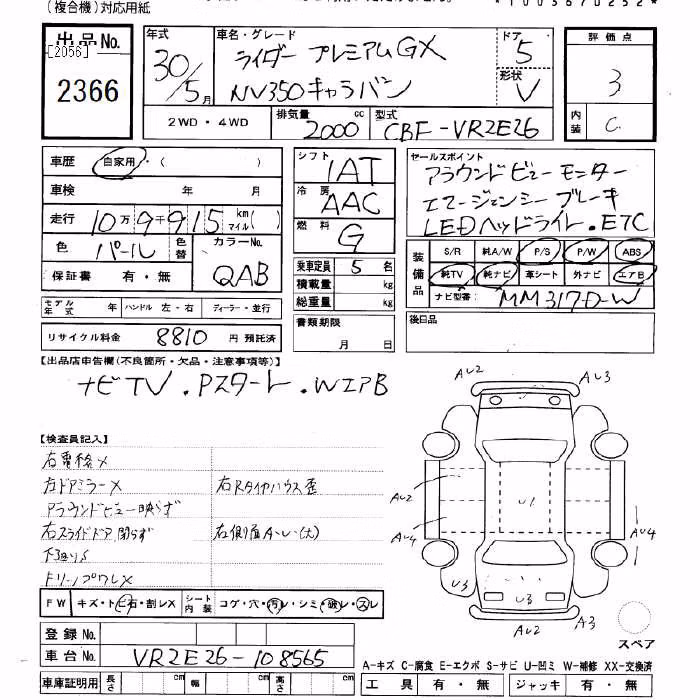 (複合機)対応用紙
*1003670252*
出品No.
[2056]
2366
年式
30/5月
車名・グレード
ライダー プレミアムGX
NV350キャラバン
ドア
5
形状
V
評価点
3
内装
C
2WD・4WD
排気量
2000 cc
型式
CBF-VR2E26
車歴 自家用・( )
車検 年 月
走行 10万9千915 km マイル( )
色 パール 色替
カラーNo.
QAB
保証書 有・無
シフト
IAT
冷房
AAC
燃料
G
セールスポイント
アラウンドビューモニター
エマージェンシーブレーキ
LEDヘッドライト.ETC
装備品
S/R 純A/W P/S P/W ABS
純TV 純ナビ 革シート 外ナビ エアB
ナビ型番: MM317D-W
乗車定員 5 名
積載量 kg
総重量 kg
書類期限
月 日
後日品
モデル年式 年 ハンドル 左・右 ディーラー・並行
リサイクル料金 8810 円 預託済
【出品店申告欄(不良箇所・欠品・注意事項等)】
ナビTV.Pスタート.WエアB
【検査員記入】
右電格メ
右ドアミラーメ
右Rタイヤハウス歪
アラウンドビュー映らず
右スライドドア閉らず
右側面A〜U(大)
下廻りS
AU2
AU3
AU2
AU4
U1
AU4
U3
U3
AU2
A3
スペア
FW キズ・トビ石・割レX
シート内装 コゲ・穴・汚レ・シミ・破レ・スレ
登録No.
車台No. VR2E26-108565
車庫証明用 長さ cm 幅 cm 高さ cm
A-キズ C-腐食 E-エクボ S-サビ U-凹ミ W-補修 XX-交換済
工具 有・無 ジャッキ 有・無